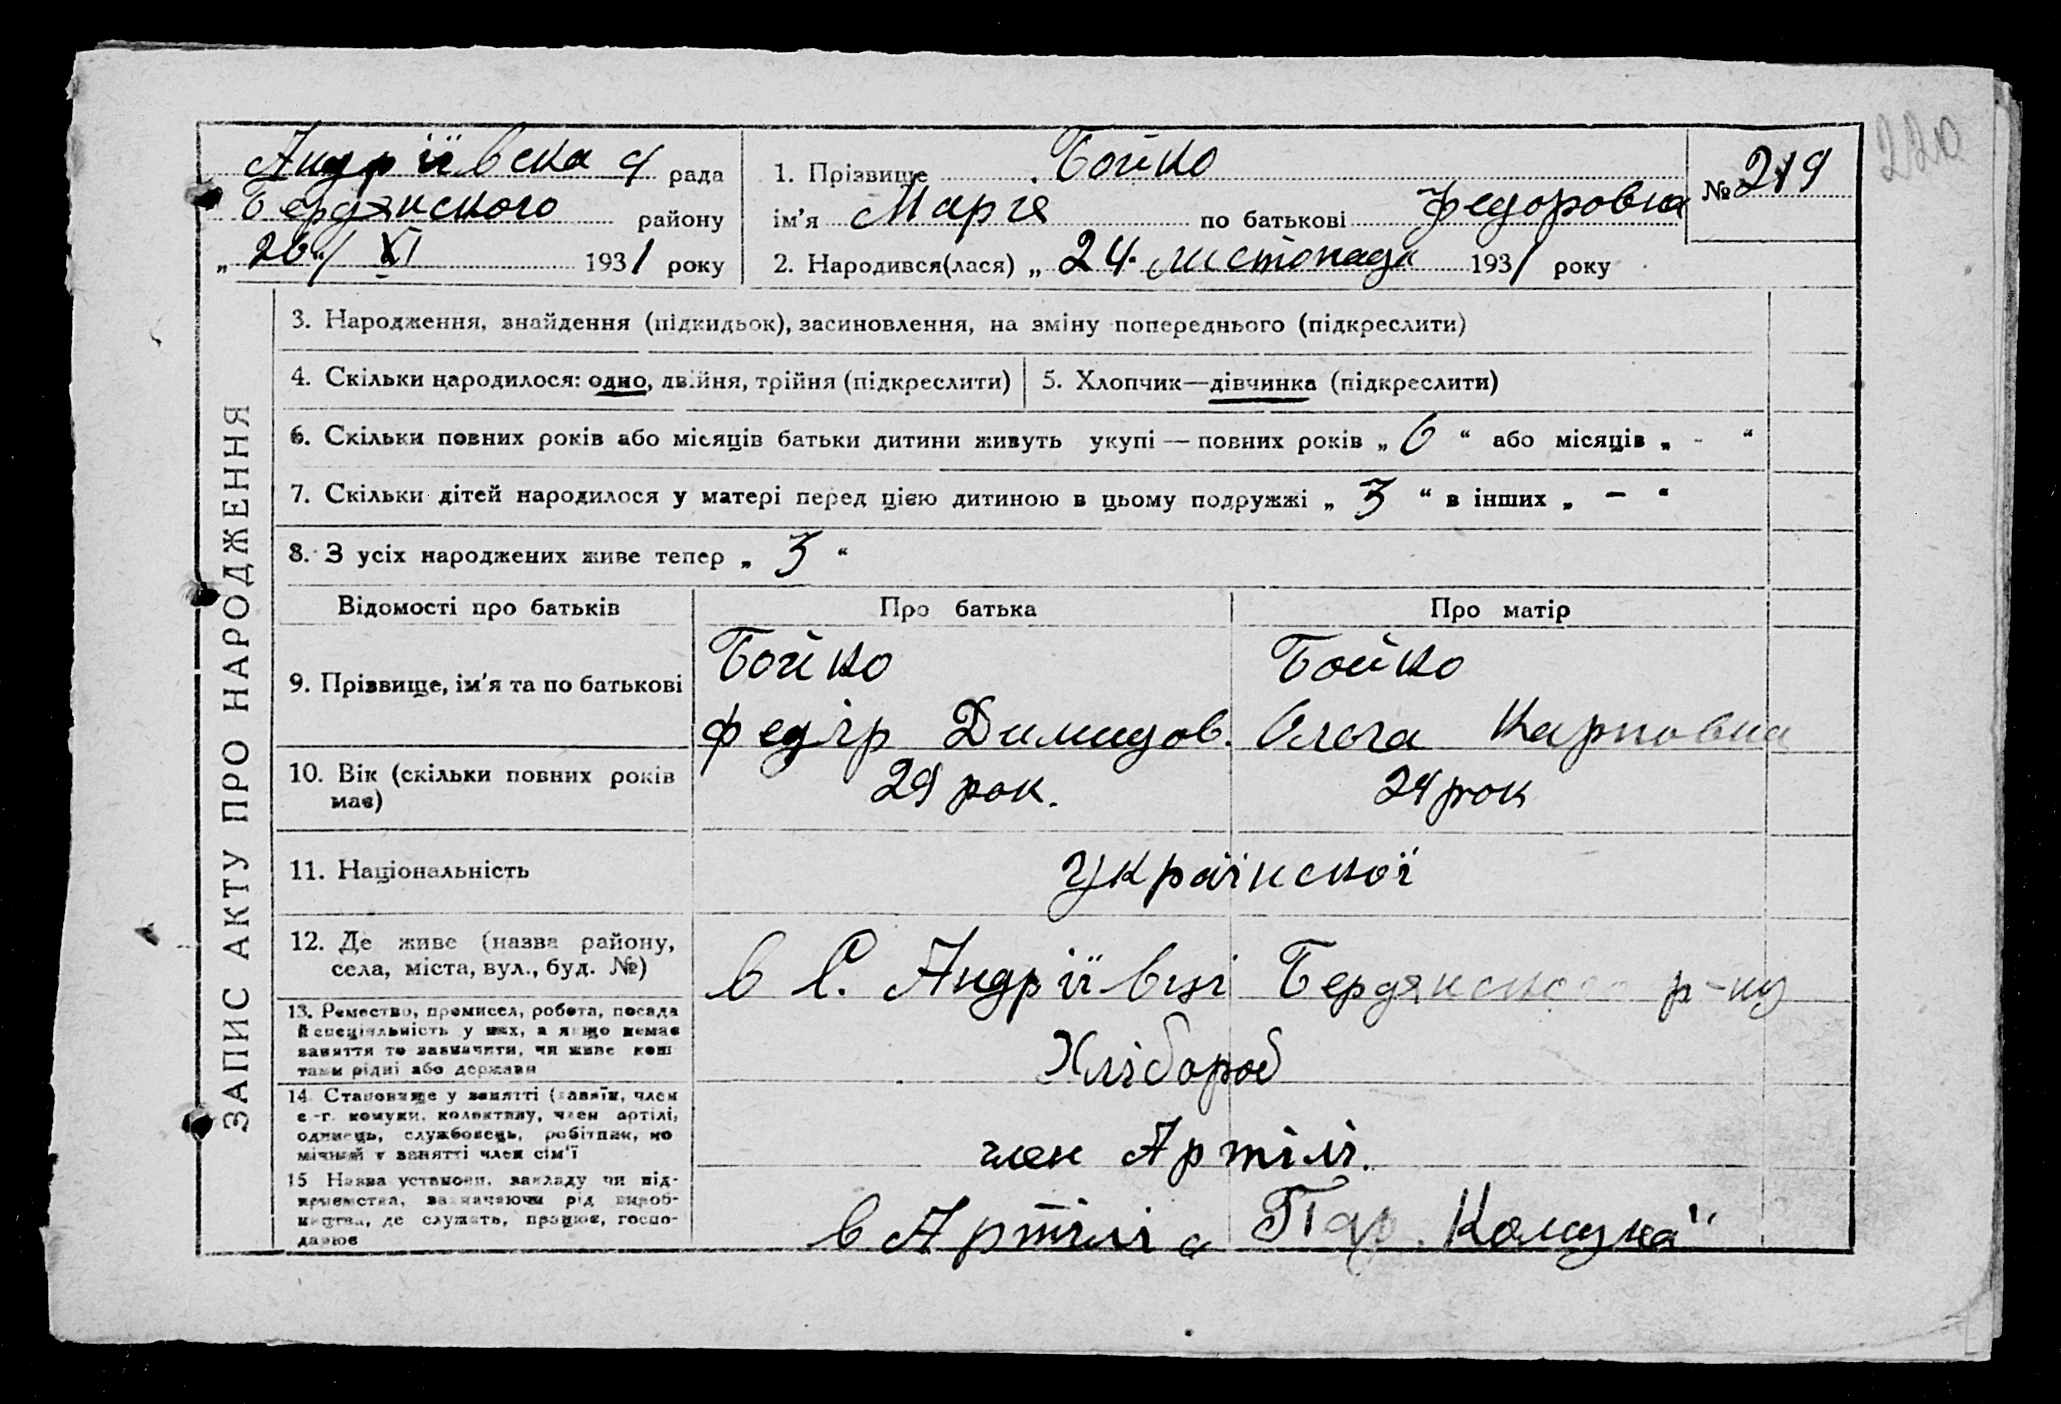 220
Андріївска с/ рада
Бердянского району
„ 26 “/ XI 1931 року
1. Прізвище Бойко
ім'я Марія по батькові Федоровна
2. Народився(лася) „ 24. листопада 1931 року
№ 219
ЗАПИС АКТУ ПРО НАРОДЖЕННЯ
3. Народження, знайдення (підкидьок), засиновлення, на зміну попереднього (підкреслити)
4. Скільки народилося: одно, двійня, трійня (підкреслити)
5. Хлопчик—дівчинка (підкреслити)
6. Скільки повних років або місяців батьки дитини живуть укупі — повних років „ 6 “ або місяців „ - “
7. Скільки дітей народилося у матері перед цією дитиною в цьому подружжі „ 3 “ в інших „ — “
8. З усіх народжених живе тепер „ 3 “
Відомості про батьків
Про батька
Про матір
9. Прізвище, ім'я та по батькові
Бойко
Федір Димидов.
Бойко
Ольга Карповна
10. Вік (скільки повних років
має)
29 рок.
24 рок
11. Національність
Українскої
12. Де живе (назва району,
села, міста, вул., буд. №)
в С. Андріївці Бердянского р-ну
13. Ремество, промисел, робота, посада
й спеціяльність у них, а якщо немає
заняття то зазначити, чи живе кош
тами рідні або держави
Хлібороб
14. Становище у занятті (хазяїн, член
с.-г. комуни, колективу, член артілі,
одинець, службовець, робітник, по
мічний у занятті член сім'ї
член Артілі.
15 Назва установи, закладу чи під-
приємства, зазначаючи рід вироб-
ництва, де служать, працює, госпо-
дарює
в Артілі „ Пар. Комуна"